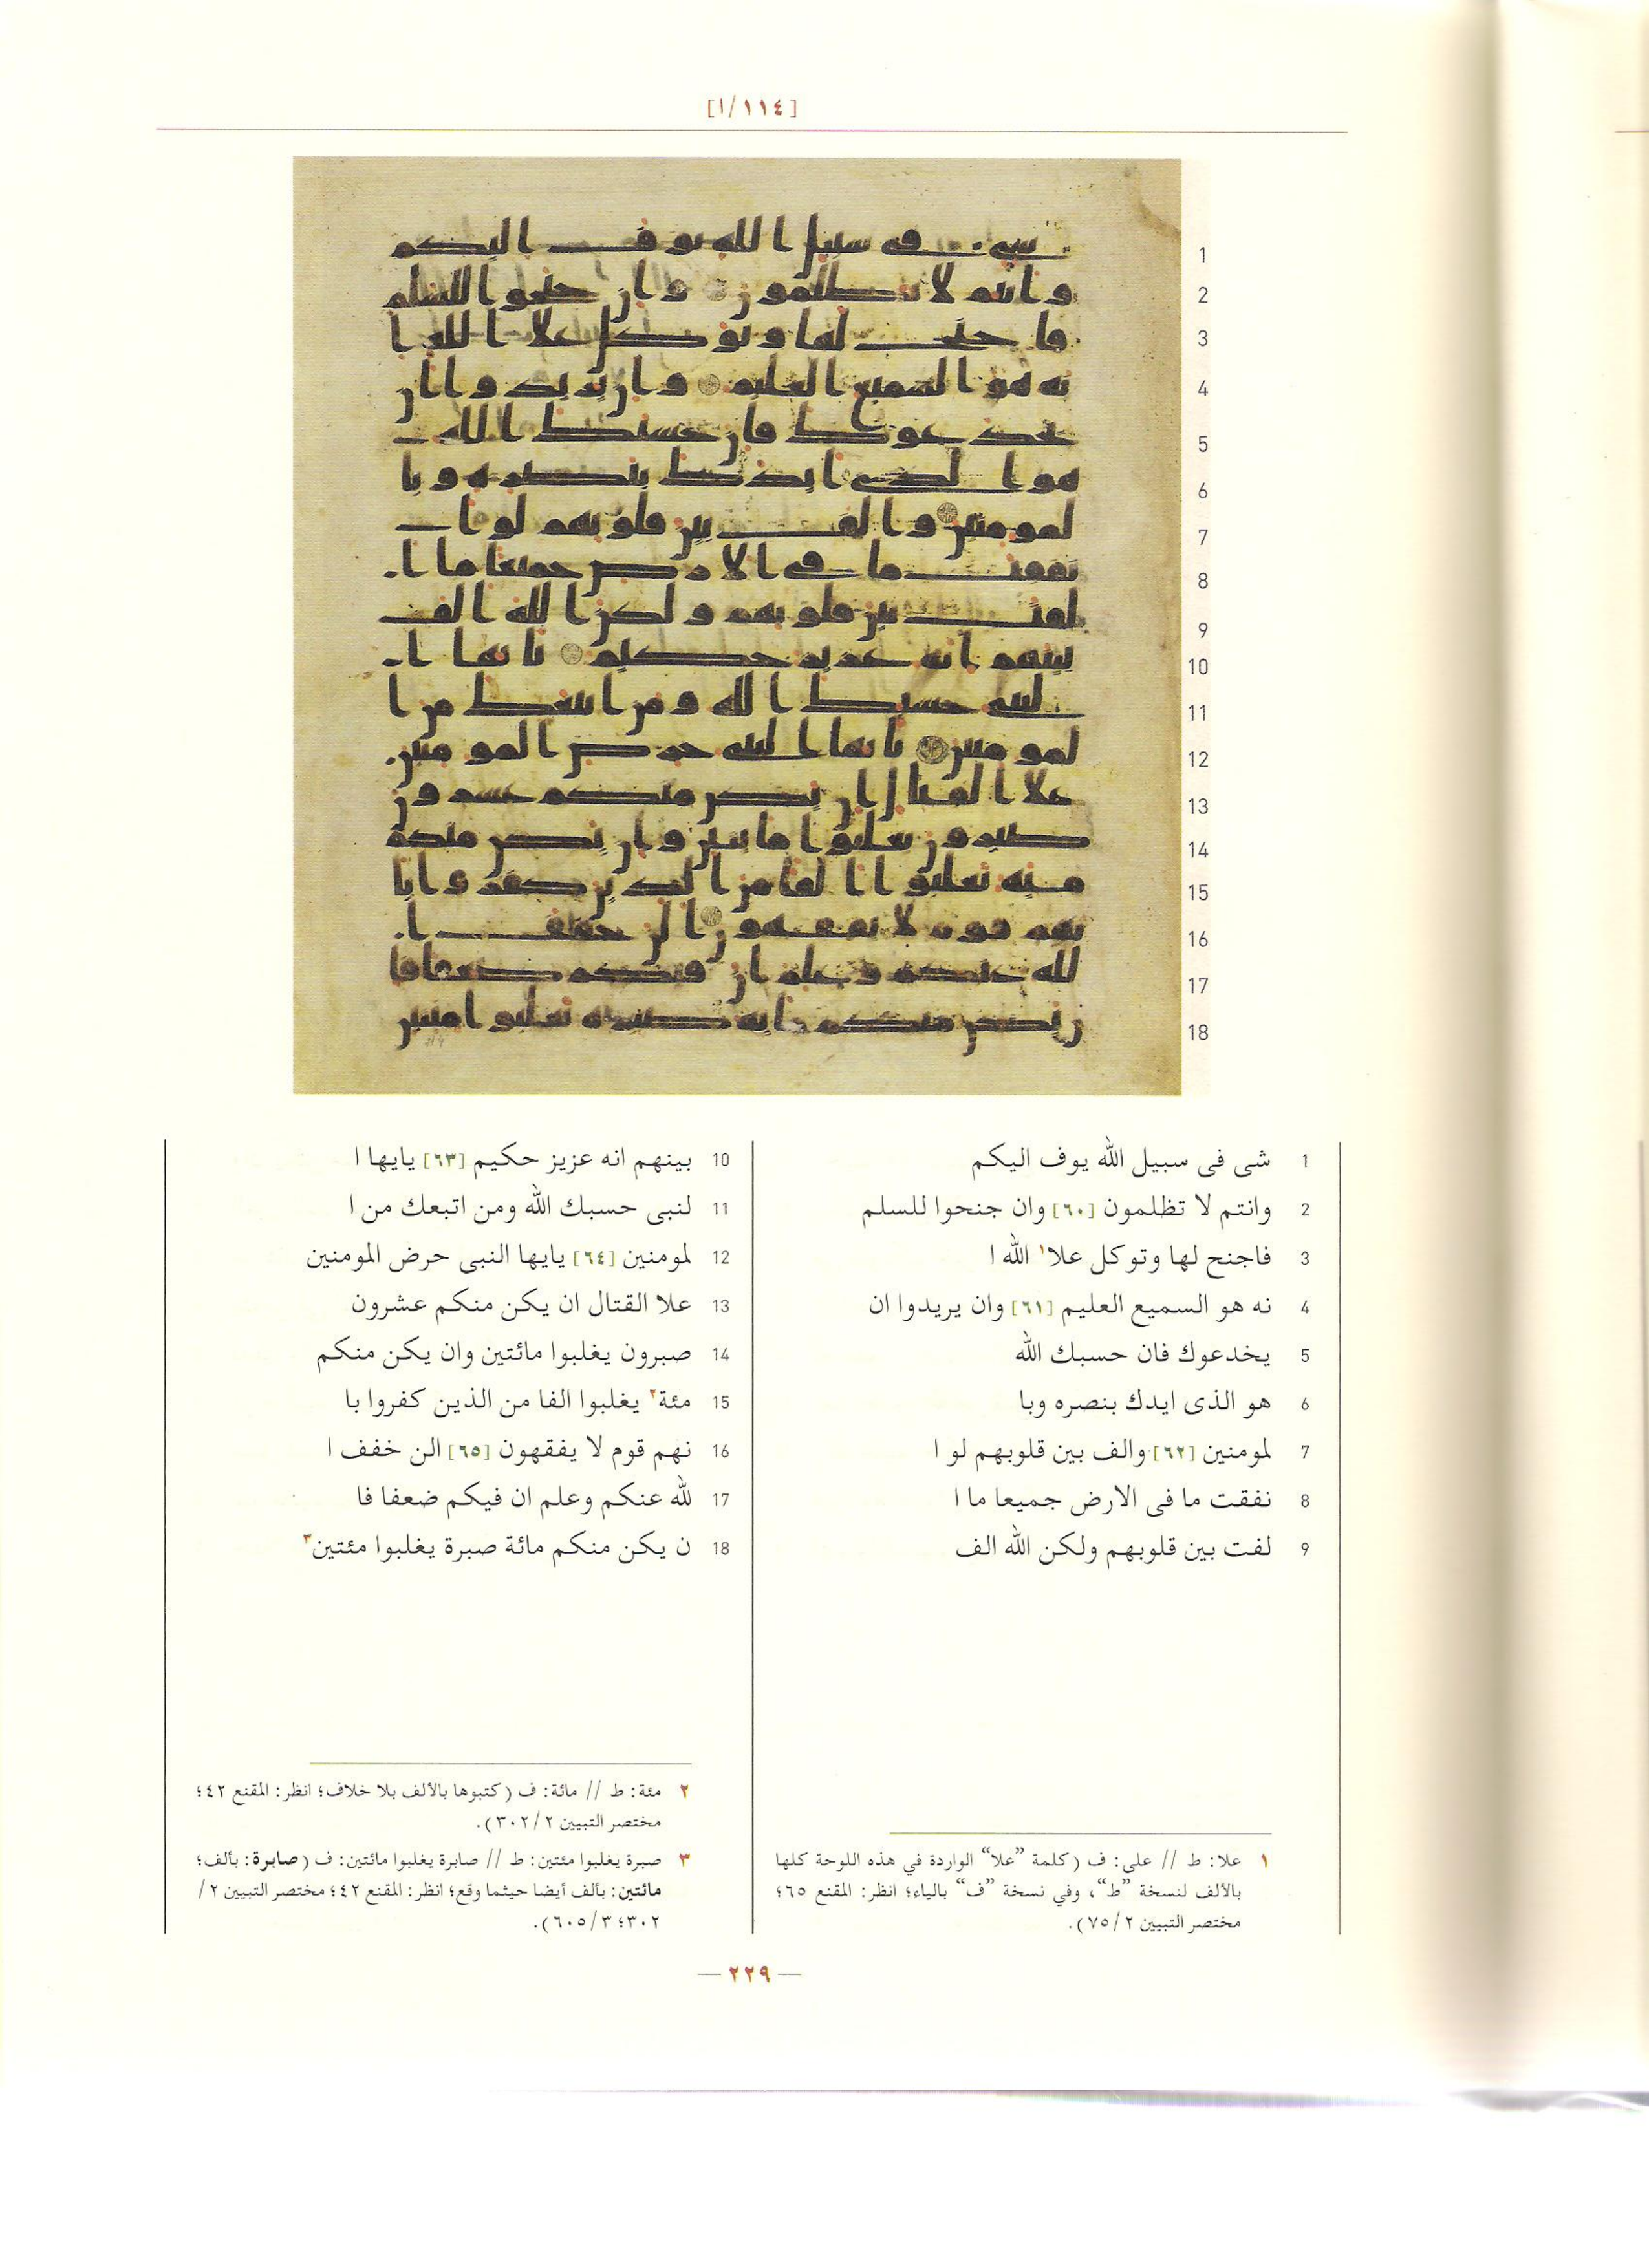 [١/١١٤]
1
2
3
4
5
6
7
8
9
10
11
12
13
14
15
16
17
18
1 شى فى سبيل الله يوف اليكم
2 وانتم لا تظلمون [٦٠] وان جنحوا للسلم
3 فاجنح لها وتوكل علا١ الله ا
4 نه هو السميع العليم [٦١] وان يريدوا ان
5 يخدعوك فان حسبك الله
6 هو الذى ايدك بنصره وبا
7 لمومنين [٦٢] والف بين قلوبهم لو ا
8 نفقت ما فى الارض جميعا ما ا
9 لفت بين قلوبهم ولكن الله الف
10 بينهم انه عزيز حكيم [٦٣] يايها ا
11 لنبى حسبك الله ومن اتبعك من ا
12 لمومنين [٦٤] يايها النبى حرض المومنين
13 علا القتال ان يكن منكم عشرون
14 صبرون يغلبوا مائتين وان يكن منكم
15 مئة٢ يغلبوا الفا من الذين كفروا با
16 نهم قوم لا يفقهون [٦٥] الن خفف ا
17 لله عنكم وعلم ان فيكم ضعفا فا
18 ن يكن منكم مائة صبرة يغلبوا مئتين٣
١ علا: ط // على: ف (كلمة ”علا“ الواردة في هذه اللوحة كلها
بالألف لنسخة ”ط“، وفي نسخة ”ف“ بالياء؛ انظر: المقنع ٦٥؛
مختصر التبيين ٢/ ٧٥).
٢ مئة: ط // مائة: ف (كتبوها بالألف بلا خلاف؛ انظر: المقنع ٤٢؛
مختصر التبيين ٢/ ٣٠٢).
٣ صبرة يغلبوا مئتين: ط // صابرة يغلبوا مائتين: ف (صابرة: بألف؛
مائتين: بألف أيضا حيثما وقع؛ انظر: المقنع ٤٢؛ مختصر التبيين ٢/
٣٠٢؛ ٣/ ٦٠٥).
— ٢٢٩ —